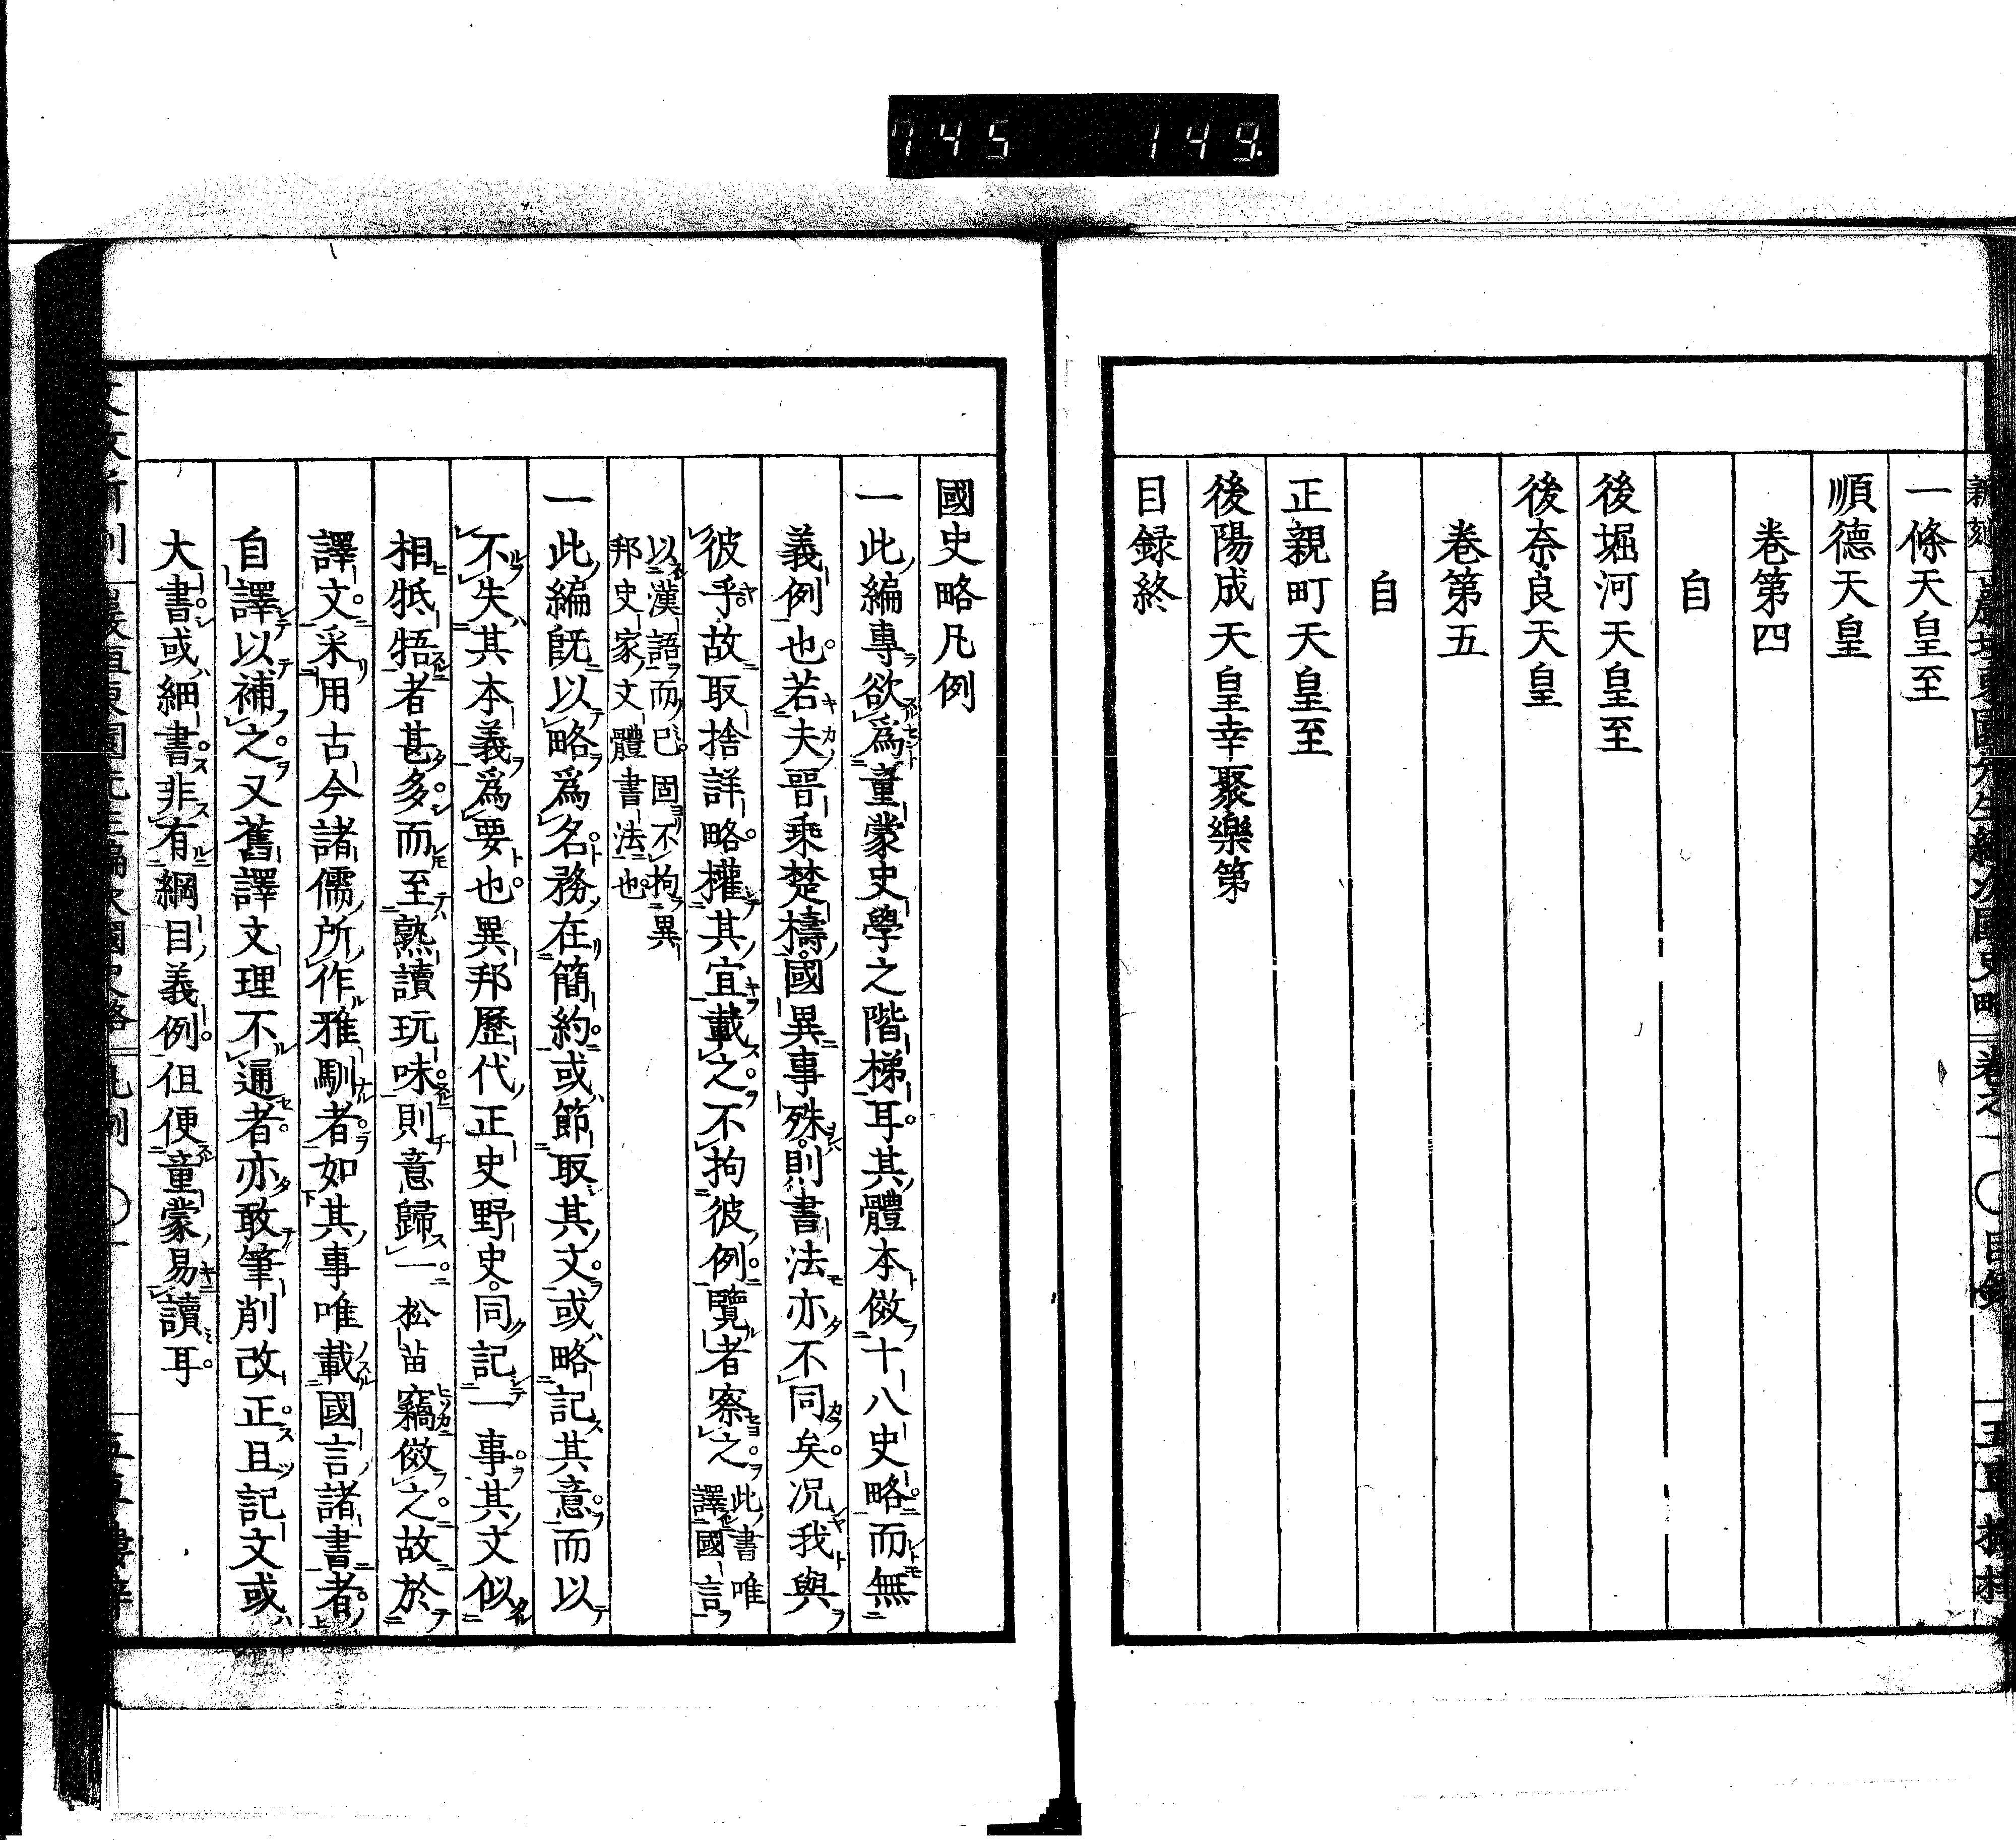 745 149.
一條天皇至
順德天皇
卷第四
自
後堀河天皇至
後奈良天皇
卷第五
自
正親町天皇至
後陽成天皇幸聚樂第
目録終
國史略凡例
一此編專欲爲童蒙史學之階梯耳其體本倣十八史略而無
義例也若夫晉乘楚檮國異事殊則書法亦不同矣況我與
彼乎故取捨詳略權其宜載之不拘彼例覽者察之此書唯譯國言
以漢語而已固不拘異邦史家文體書法也
一此編既以略爲名務在簡約或節取其文或略記其意而以
不失其本義爲要也異邦歷代正史野史同記一事其文似
相牴牾者甚多而至熟讀玩味則意歸一松苗竊倣之故於
譯文采用古今諸儒所作雅馴者如其事唯載國言諸書者
自譯以補之又舊譯文理不通者亦敢筆削改正且記文或
大書或細書非有綱目義例但便童蒙易讀耳